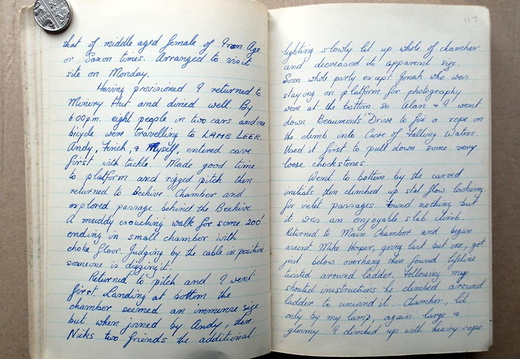 that of middle aged female of Iron Age
or Saxon times. Arranged to visit
site on Monday.
Having provisioned I returned to
Minery Hut and dined well. By
6.00pm. eight people in two cars and one
bicycle were travelling to LAMB LEER.
Andy, Finch, & Myself, entered cave
first with tackle. Made good time
to platform and rigged pitch then
returned to Beehive Chamber and
explored passage behind the Beehive
A muddy crouching walk for some 200'
ending in small chamber with
choke floor. Judging by the cable in position
someone is digging it.
Returned to pitch and I went
first. Landing at bottom the
chamber seemed an immense size
but when joined by Andy, then
Nicks two friends the additional
117
lighting slowly lit up whole of chamber
and decreased its apparent size.
Soon whole party except Jonah who was
staying on platform for photography
were at the bottom so Alan & I went
down Beaumont's Drive to fix a rope on
the climb into Cave of Falling Waters.
Used it first to pull down some very
loose chockstones.
Went to bottom by the carved
initials then climbed up slat flow looking
for inlet passages found nothing but
it was an enjoyable slab climb.
Returned to Main Chamber and began
ascent. Mike Hooper, going last but one, got
just below overhang then found lifeline
twisted around ladder. Following my
shouted instructions he climbed around
ladder to unwind it. Chamber, lit
only by my lamp, again large &
gloomy I climbed up with heavy rope